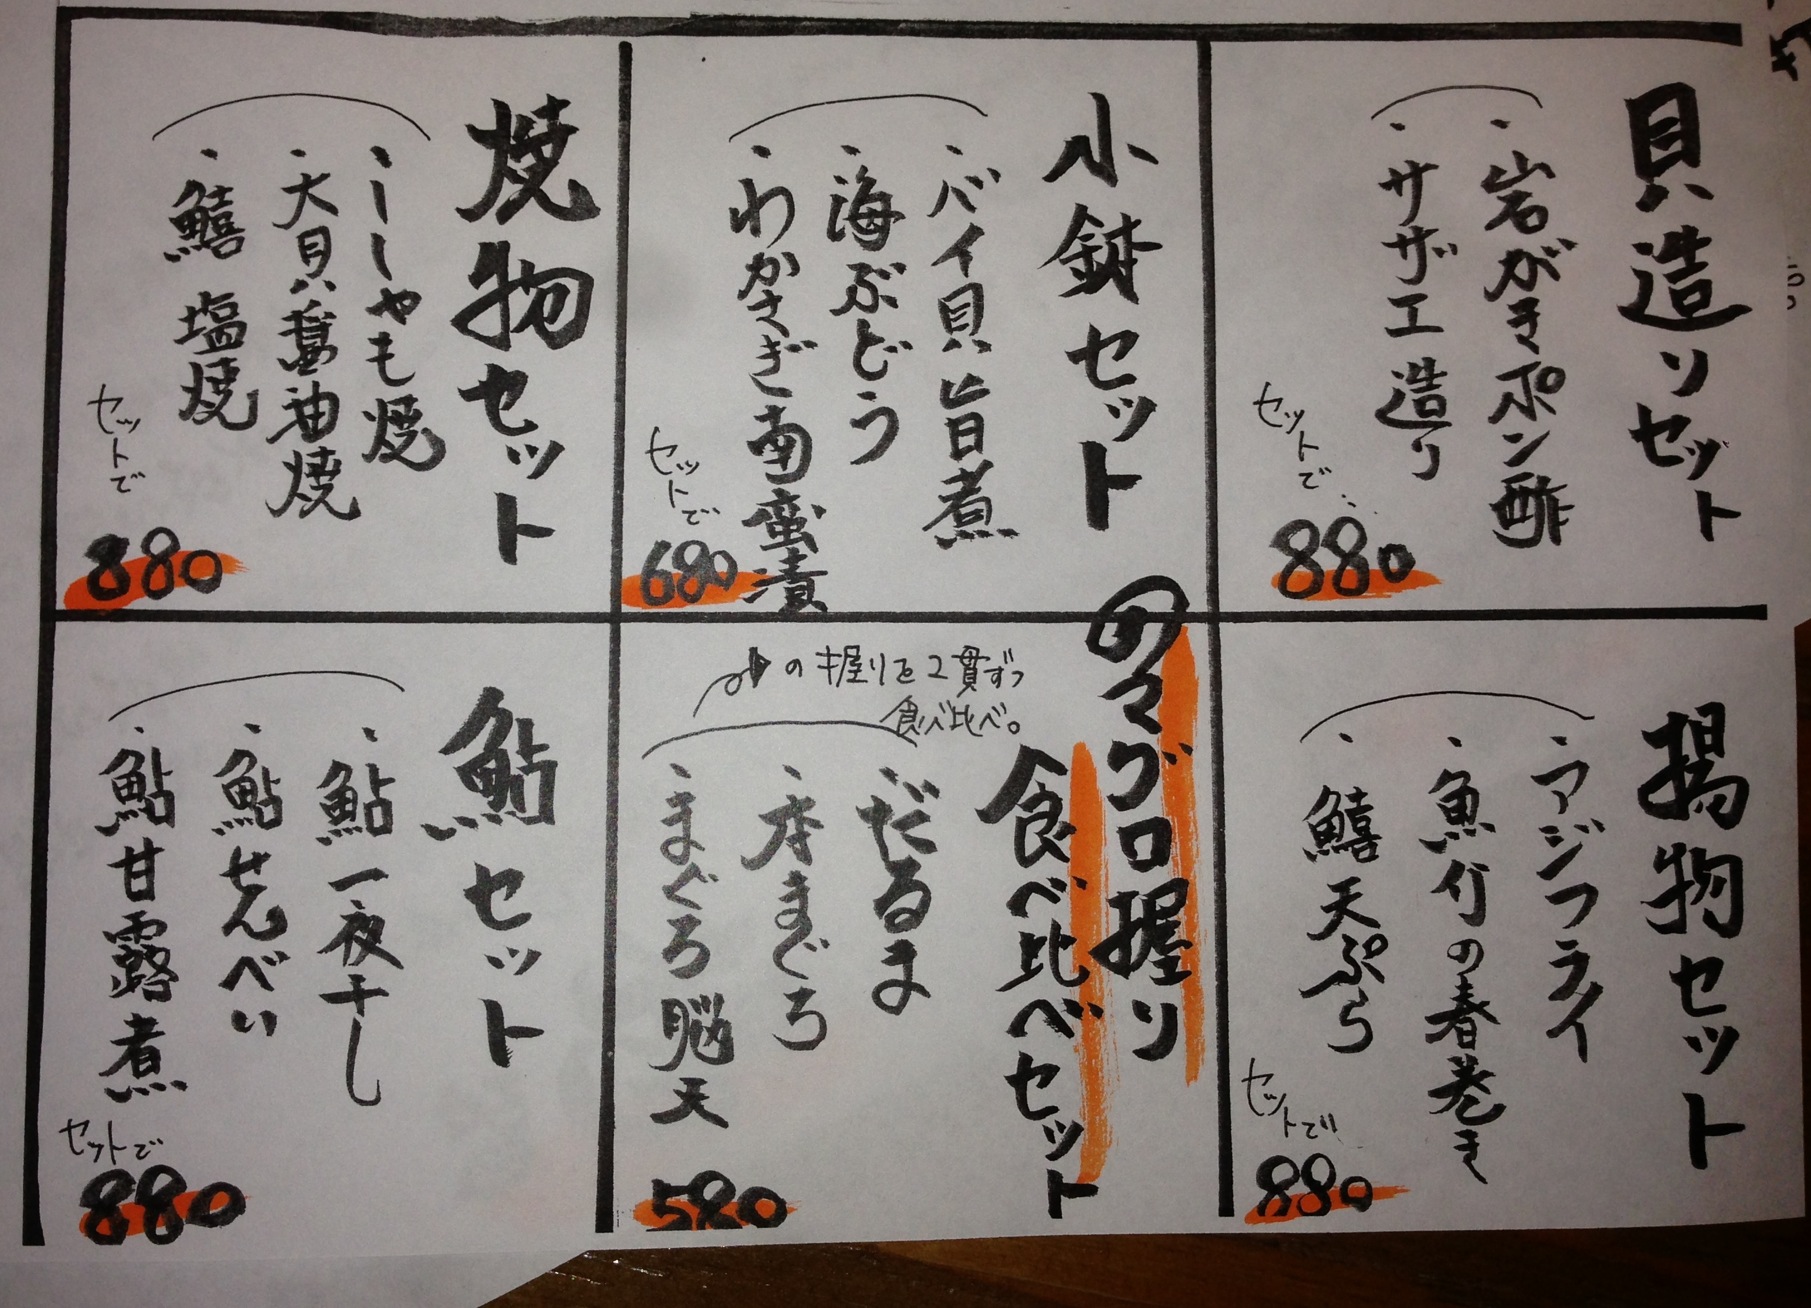 貝造りセット
・岩がきポン酢
・サザエ造り
セットで
880
小鉢セット
・バイ貝旨煮
・海ぶどう
・わかさぎ南蛮漬
セットで
680
焼物セット
・ししゃも焼
・大貝醤油焼
・鱚 塩焼
セットで
880
揚物セット
・アジフライ
・魚介の春巻き
・鱚天ぷら
セットで
880
マグロ握り
食べ比べセット
の握りを2貫ずつ
食べ比べ。
・だるま
・本まぐろ
・まぐろ脳天
580
鮎セット
・鮎一夜干し
・鮎せんべい
・鮎甘露煮
セットで
880